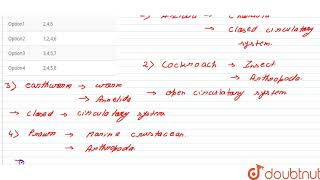 Option1 2,4,5
Option2 1,2,4,6
Option3 3,4,5,7
Option4 2,4,5,8
→ closed circulatory
system.
2) Cockroach → Insect
→ Arthropoda.
→ open circulatory system
3) earthworm → worm
→ Annelida
→ closed → circulatory system
4) Prawn → marine crustacean.
→ Arthropoda.
doubtnut